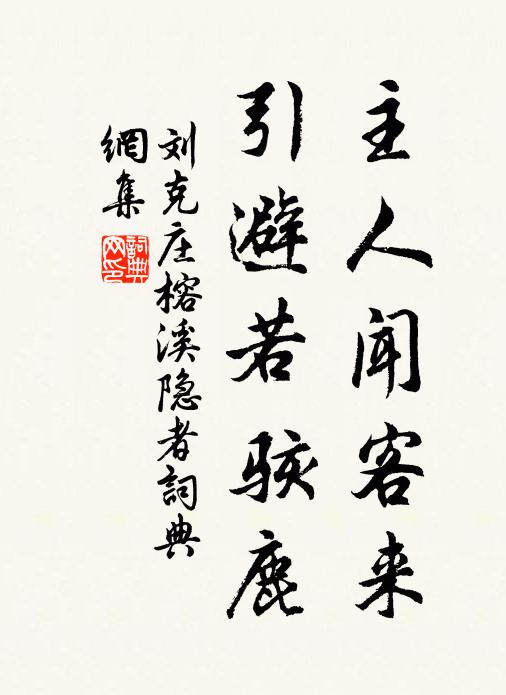 主人闻客来
引避若骇鹿
刘克庄榕溪隐者詞典
網集
詞典网印